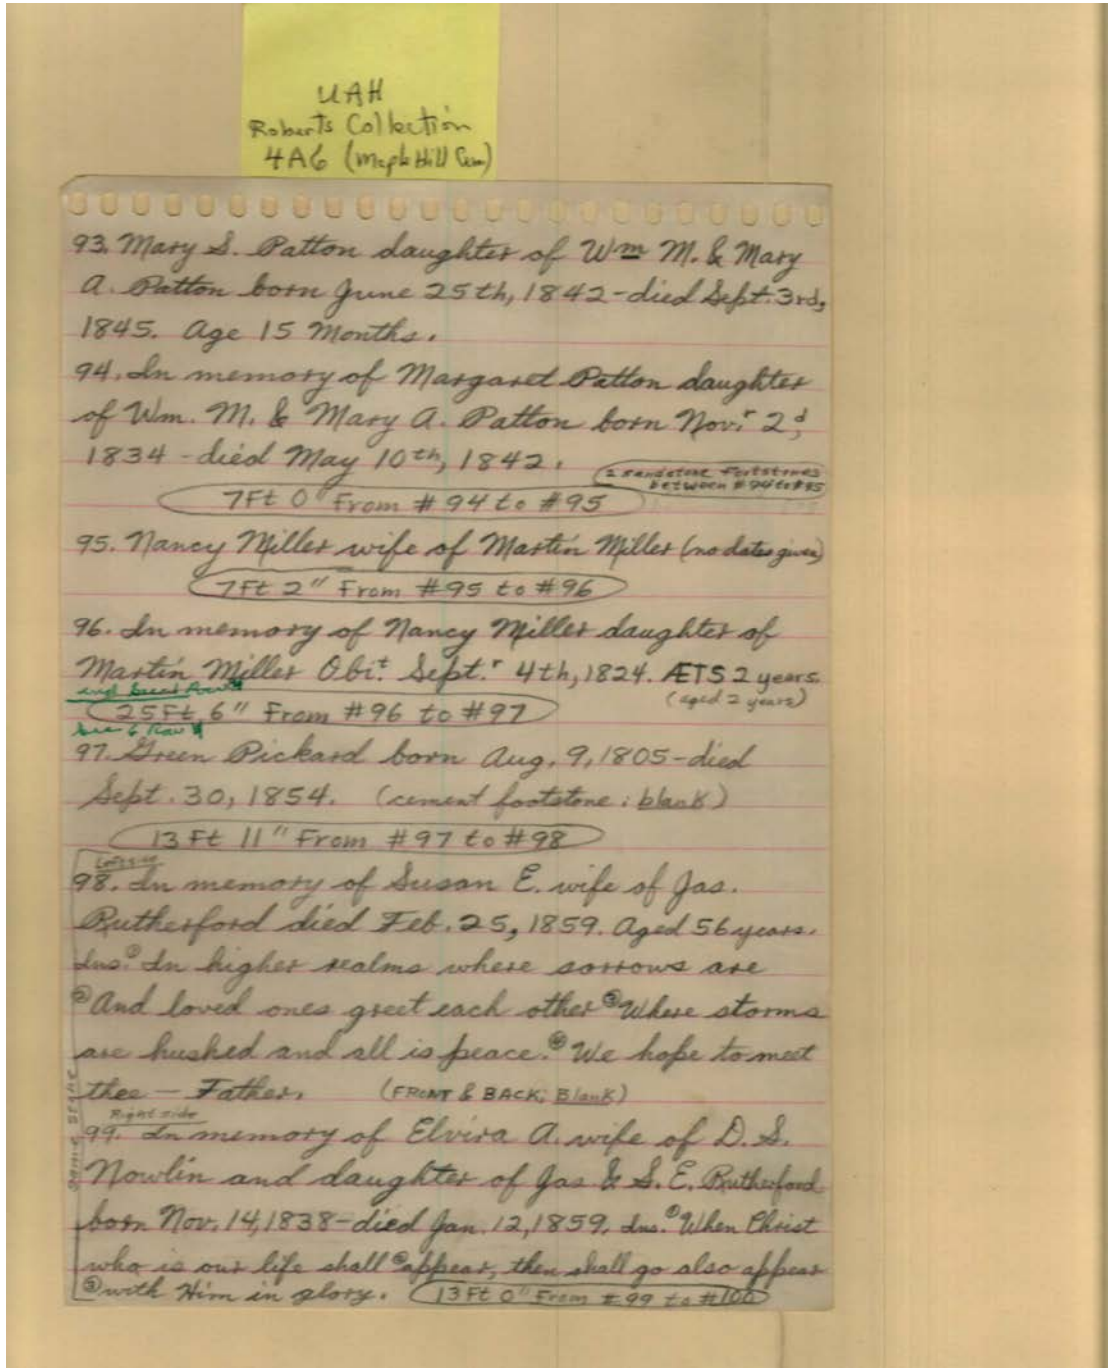 UAH
Roberts Collection
4A6 (Maple Hill Cem)
93. Mary S. Patton daughter of Wm M. & Mary
A. Patton born June 25th, 1842 - died Sept. 3rd,
1845. Age 15 Months.
94. In memory of Margaret Patton daughter
of Wm. M. & Mary A. Patton born Nov.r 2d,
1834 - died May 10th, 1842.
2 sandstone footstones
between #94 to #95
7Ft 0" From #94 to #95
95. Nancy Miller wife of Martin Miller (no dates given)
7Ft 2" From #95 to #96
96. In memory of Nancy Miller daughter of
Martin Miller Obit. Sept.r 4th, 1824. ÆTS 2 years.
(aged 2 years)
end Row
25Ft, 6" From #96 to #97
Sec 6 Row 1
97. Green Pickard born Aug. 9, 1805 - died
Sept. 30, 1854. (cement footstone: blank)
13 Ft 11" From #97 to #98
Left side
98. In memory of Susan E. wife of Jas.
Rutherford died Feb. 25, 1859. Aged 56 years.
Ins. ① In higher realms where sorrows are
② And loved ones greet each other ③ Where storms
are hushed and all is peace. ④ We hope to meet
thee — Father. (FRONT & BACK; Blank)
same stone
Right side
99. In memory of Elvira A. wife of D. S.
Nowlin and daughter of Jas & S. E. Rutherford
born Nov. 14, 1838 - died Jan. 12, 1859. Ins. ① When Christ
who is our life shall ② appear, then shall go also appear
③ with Him in glory. 13 Ft 0" From #99 to #100